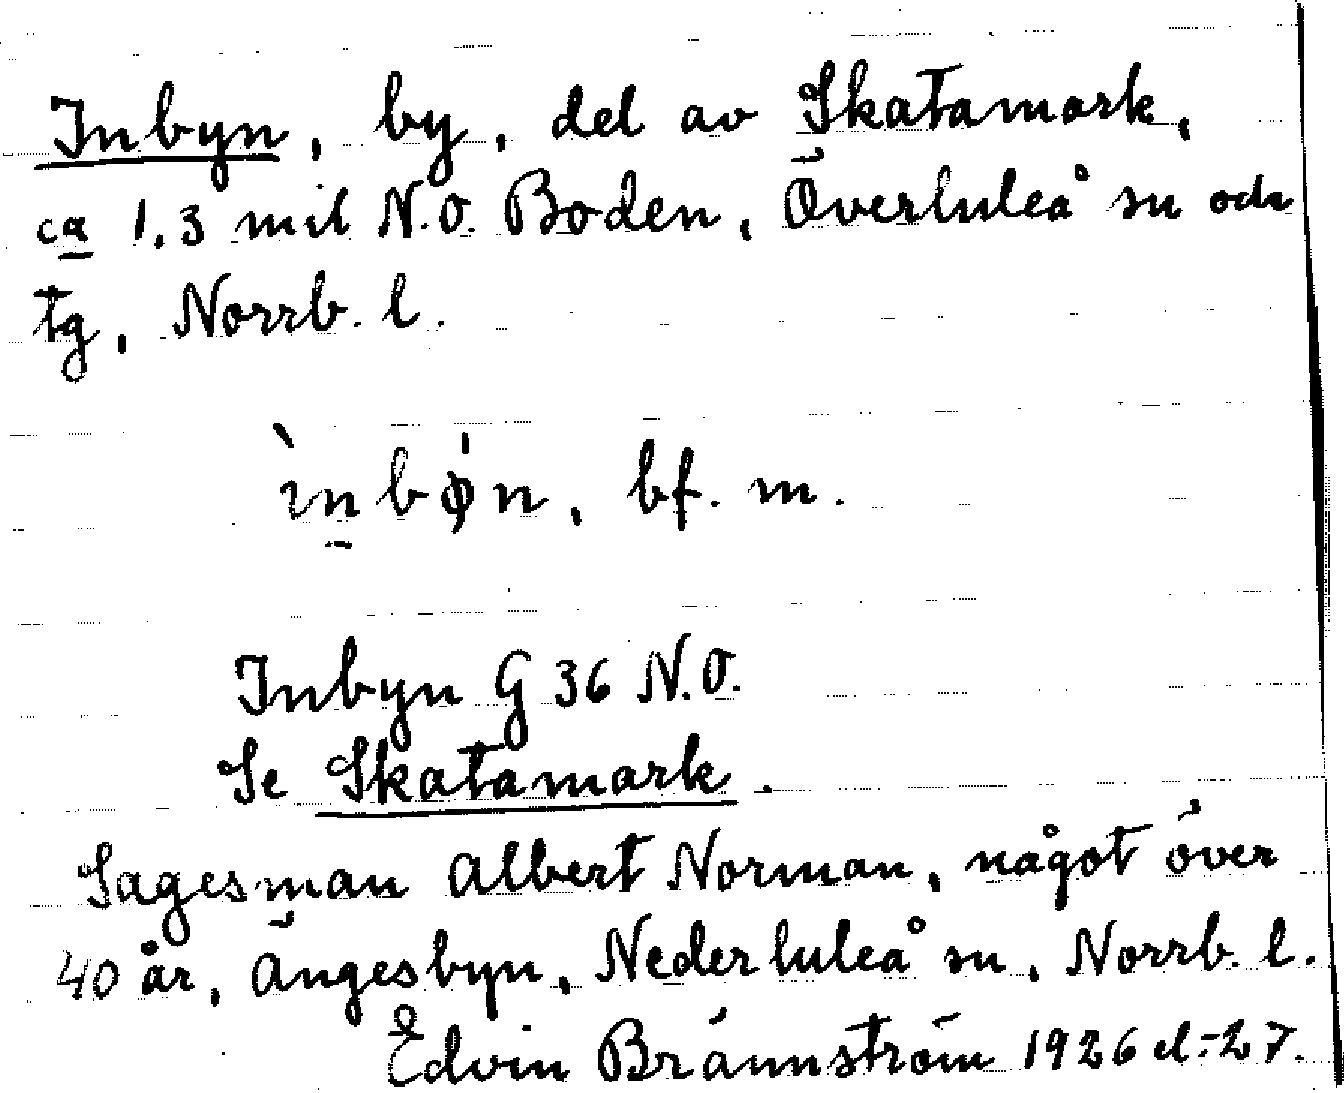 Inbyn, by, del av Skatamark,
ca 1,3 mil N.O. Boden, Överluleå sn och
tg, Norrb. l.
ìnbøn, bf. m.
Inbyn G 36 N.O.
Se Skatamark.
Sagesman Albert Norman, något över
40 år, Ängesbyn, Nederluleå sn, Norrb. l.
Edvin Brännström 1926 el.-27.